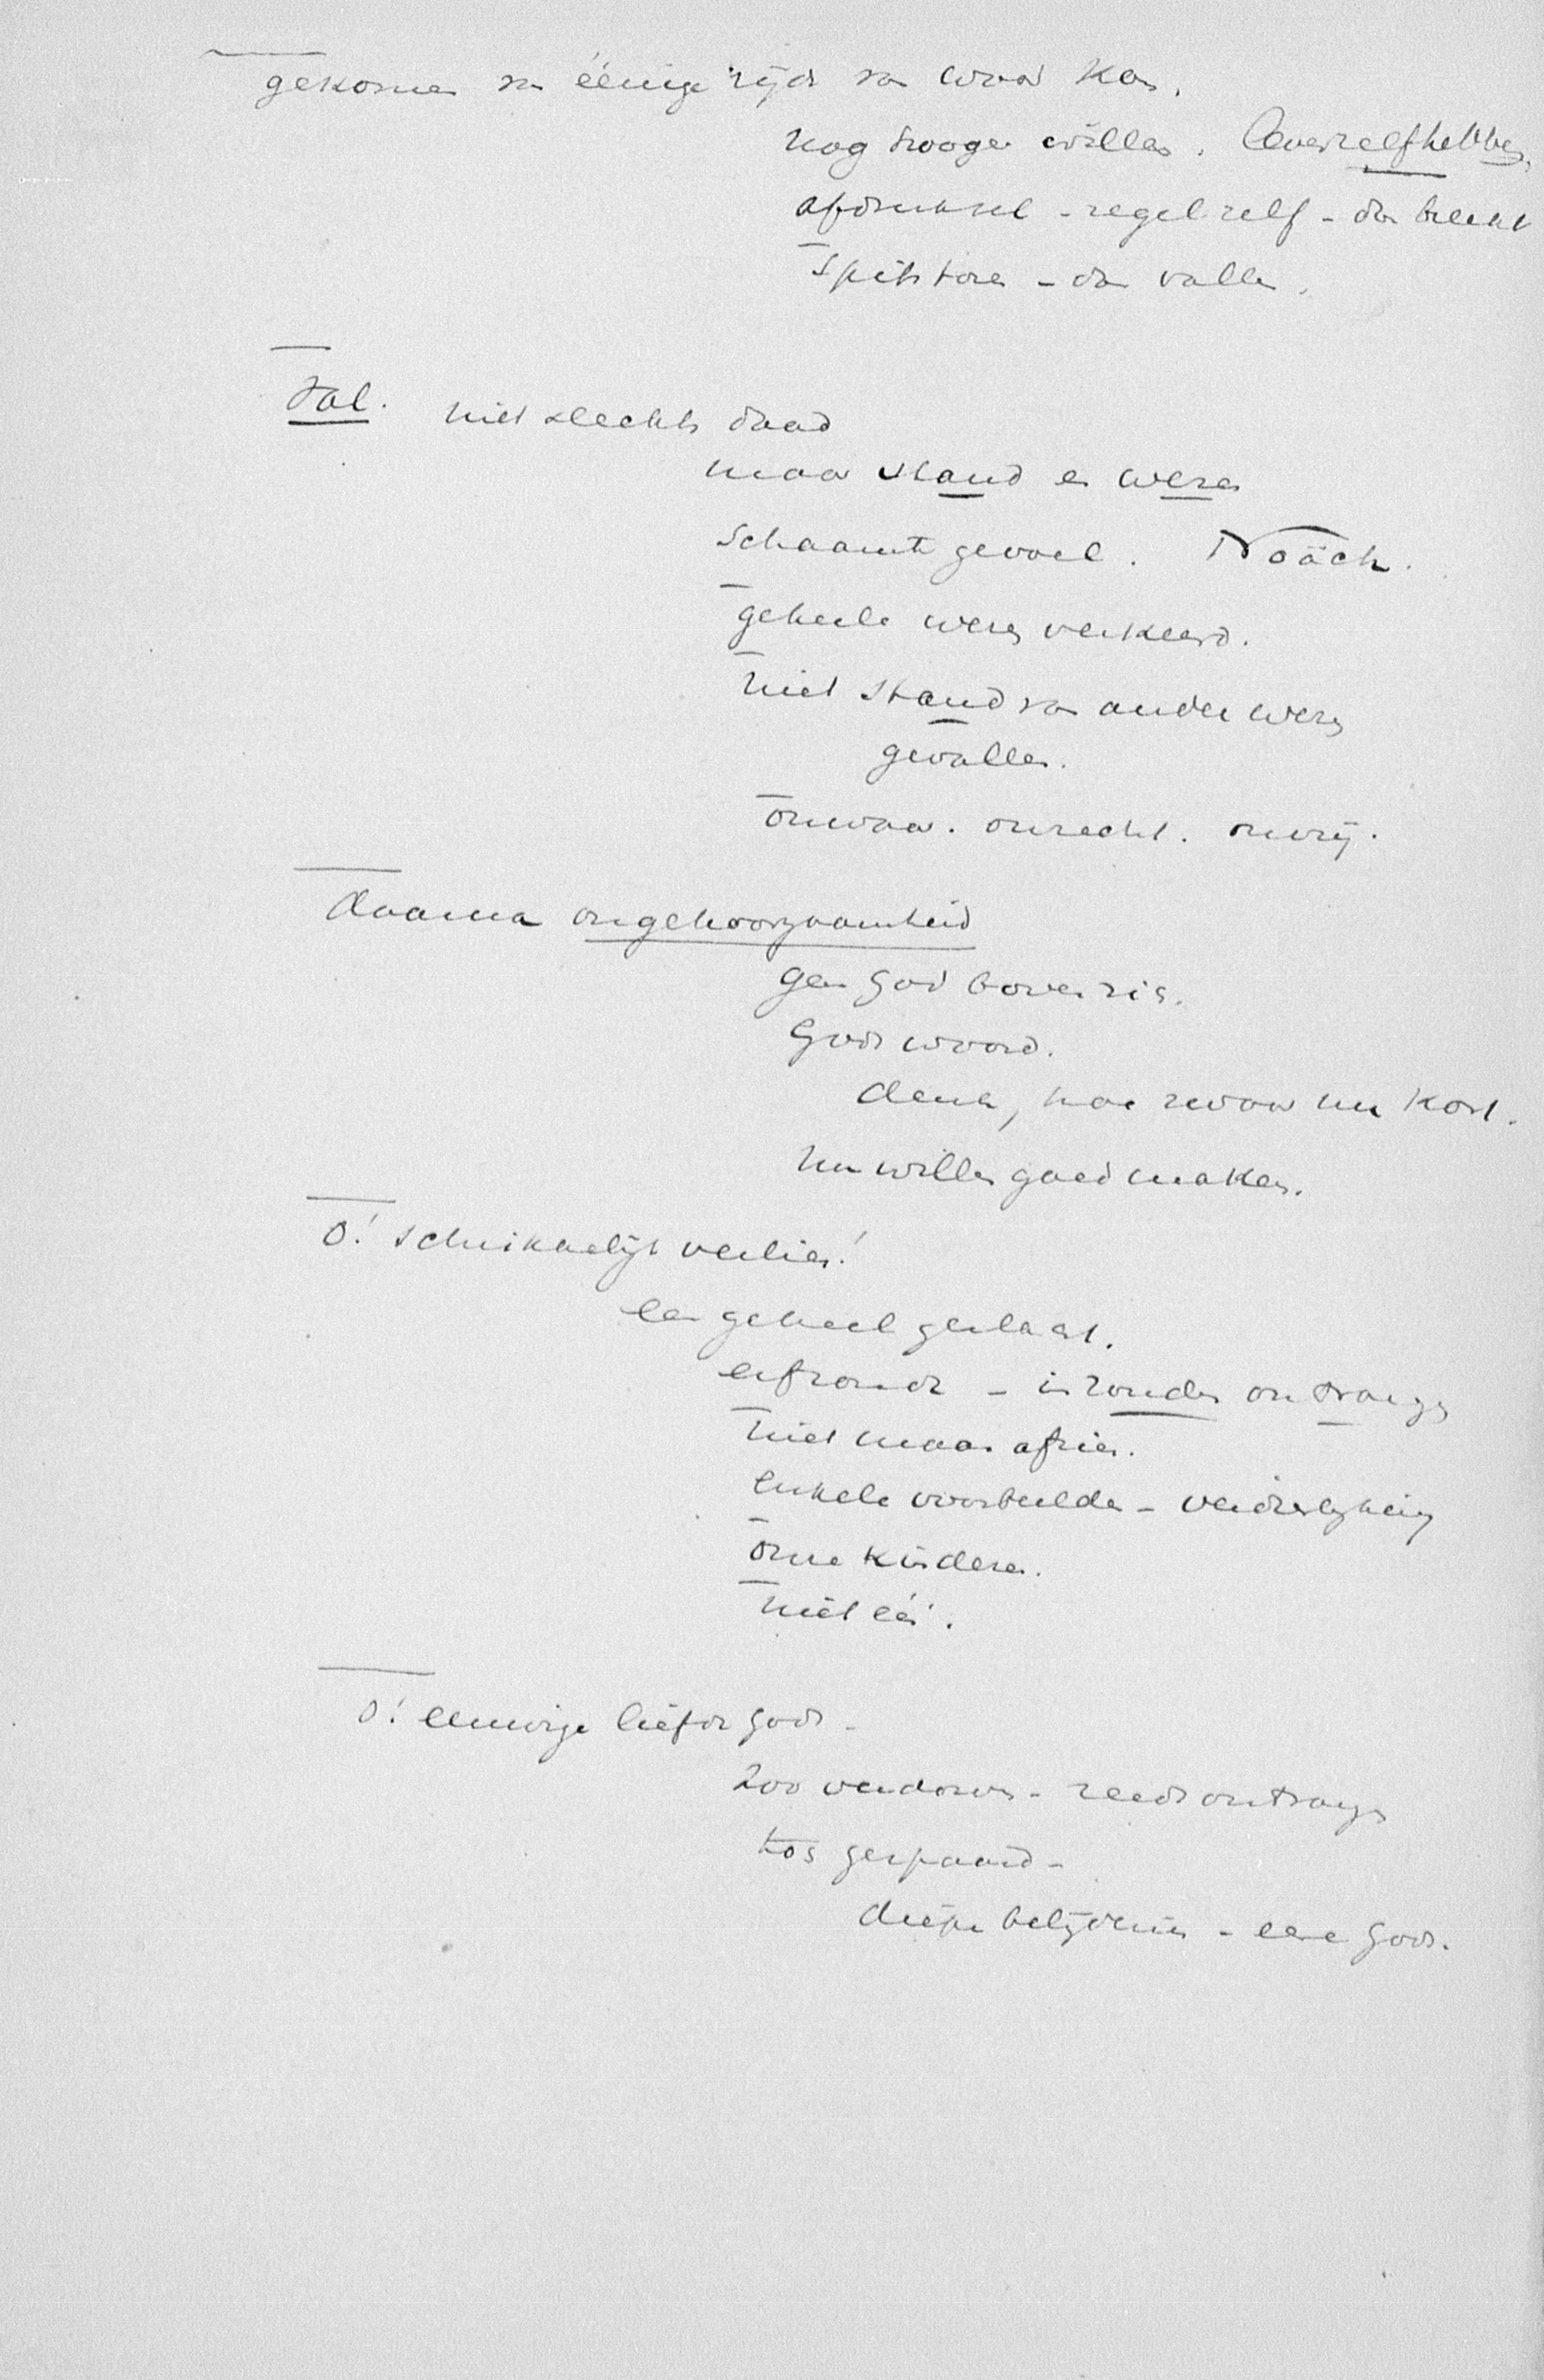 gekomen van éénige zijde van waar kon.
nog hooger willen. Leven zelf hebben.
afdruksel - zegel zelf - dan breekt
Spitstoren - dan vallen.
Val. niet slechts daad
maar stand en wezen
Schaamtegevoel. Noäch.
geheele wezen verkeerd.
niet stand van ander wezen
gevallen.
onwaar. onrecht. onvrij.
daarna ongehoorzaamheid
geen God boven zich.
Gods woord.
denk, hoe zwaar nu kost.
nu willen goed maken.
O! schrikkelijk verlies!
een geheel geslacht.
erfzonde - in zonden ontvangen
niet maar afzien.
enkele voorbeelden - verdierlijking
onze kinderen.
niet één.
O! eeuwige liefde Gods -
Zoo verdorven - reeds ontvangen
toch gespaard -
diepe belijdenis - eere Gods.